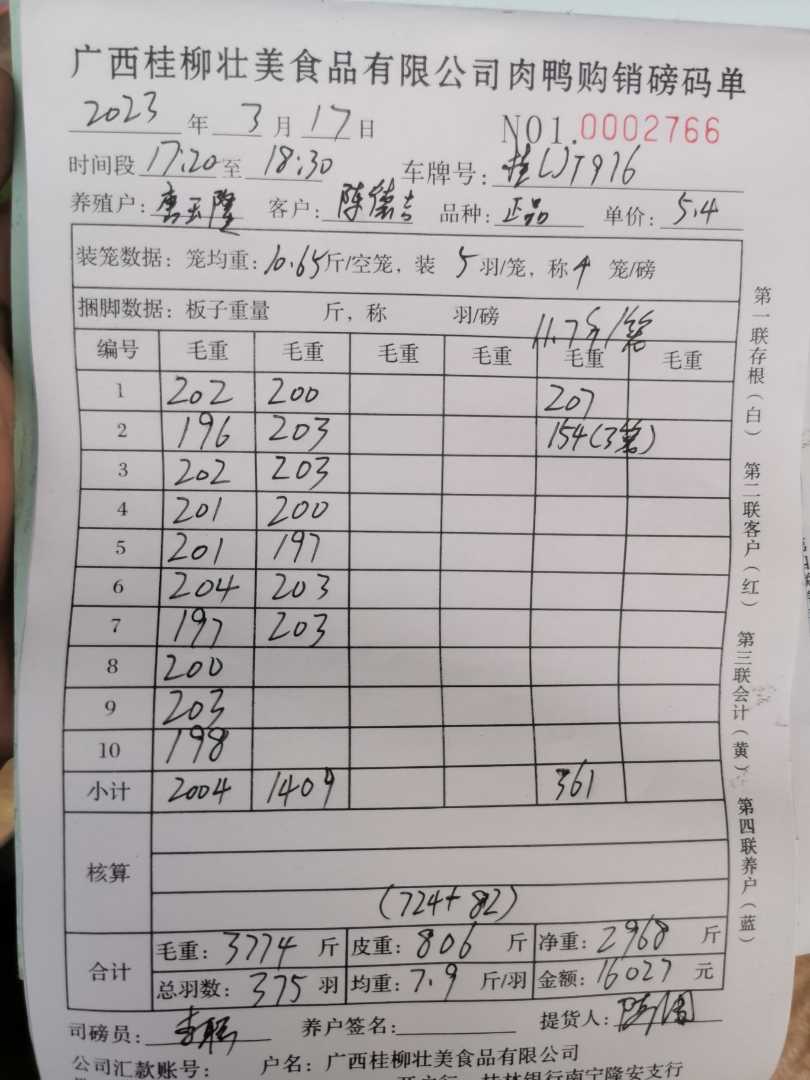 广西桂柳壮美食品有限公司肉鸭购销磅码单
2023 年 3 月 17 日 NO1.0002766
时间段 17:20 至 18:30 车牌号:
养殖户: 客户: 陈德吉 品种: 正品 单价: 5.4
装笼数据: 笼均重: 10.65 斤/空笼, 装 5 羽/笼, 称 4 笼/磅
捆脚数据: 板子重量 斤, 称 羽/磅
11.7斤/笼
编号 毛重 毛重 毛重 毛重 毛重 毛重
1 202 200 207
2 196 203 154(3笼)
3 202 203
4 201 200
5 201 197
6 204 203
7 197 203
8 200
9 203
10 198
小计 2004 1409 361
核算
(724+82)
合计
毛重: 3774 斤 皮重: 806 斤 净重: 2968 斤
总羽数: 375 羽 均重: 7.9 斤/羽 金额: 16027 元
司磅员: 养户签名: 提货人:
公司汇款账号: 户名: 广西桂柳壮美食品有限公司
桂林银行南宁隆安支行
第一联存根(白) 第二联客户(红) 第三联会计(黄) 第四联养户(蓝)